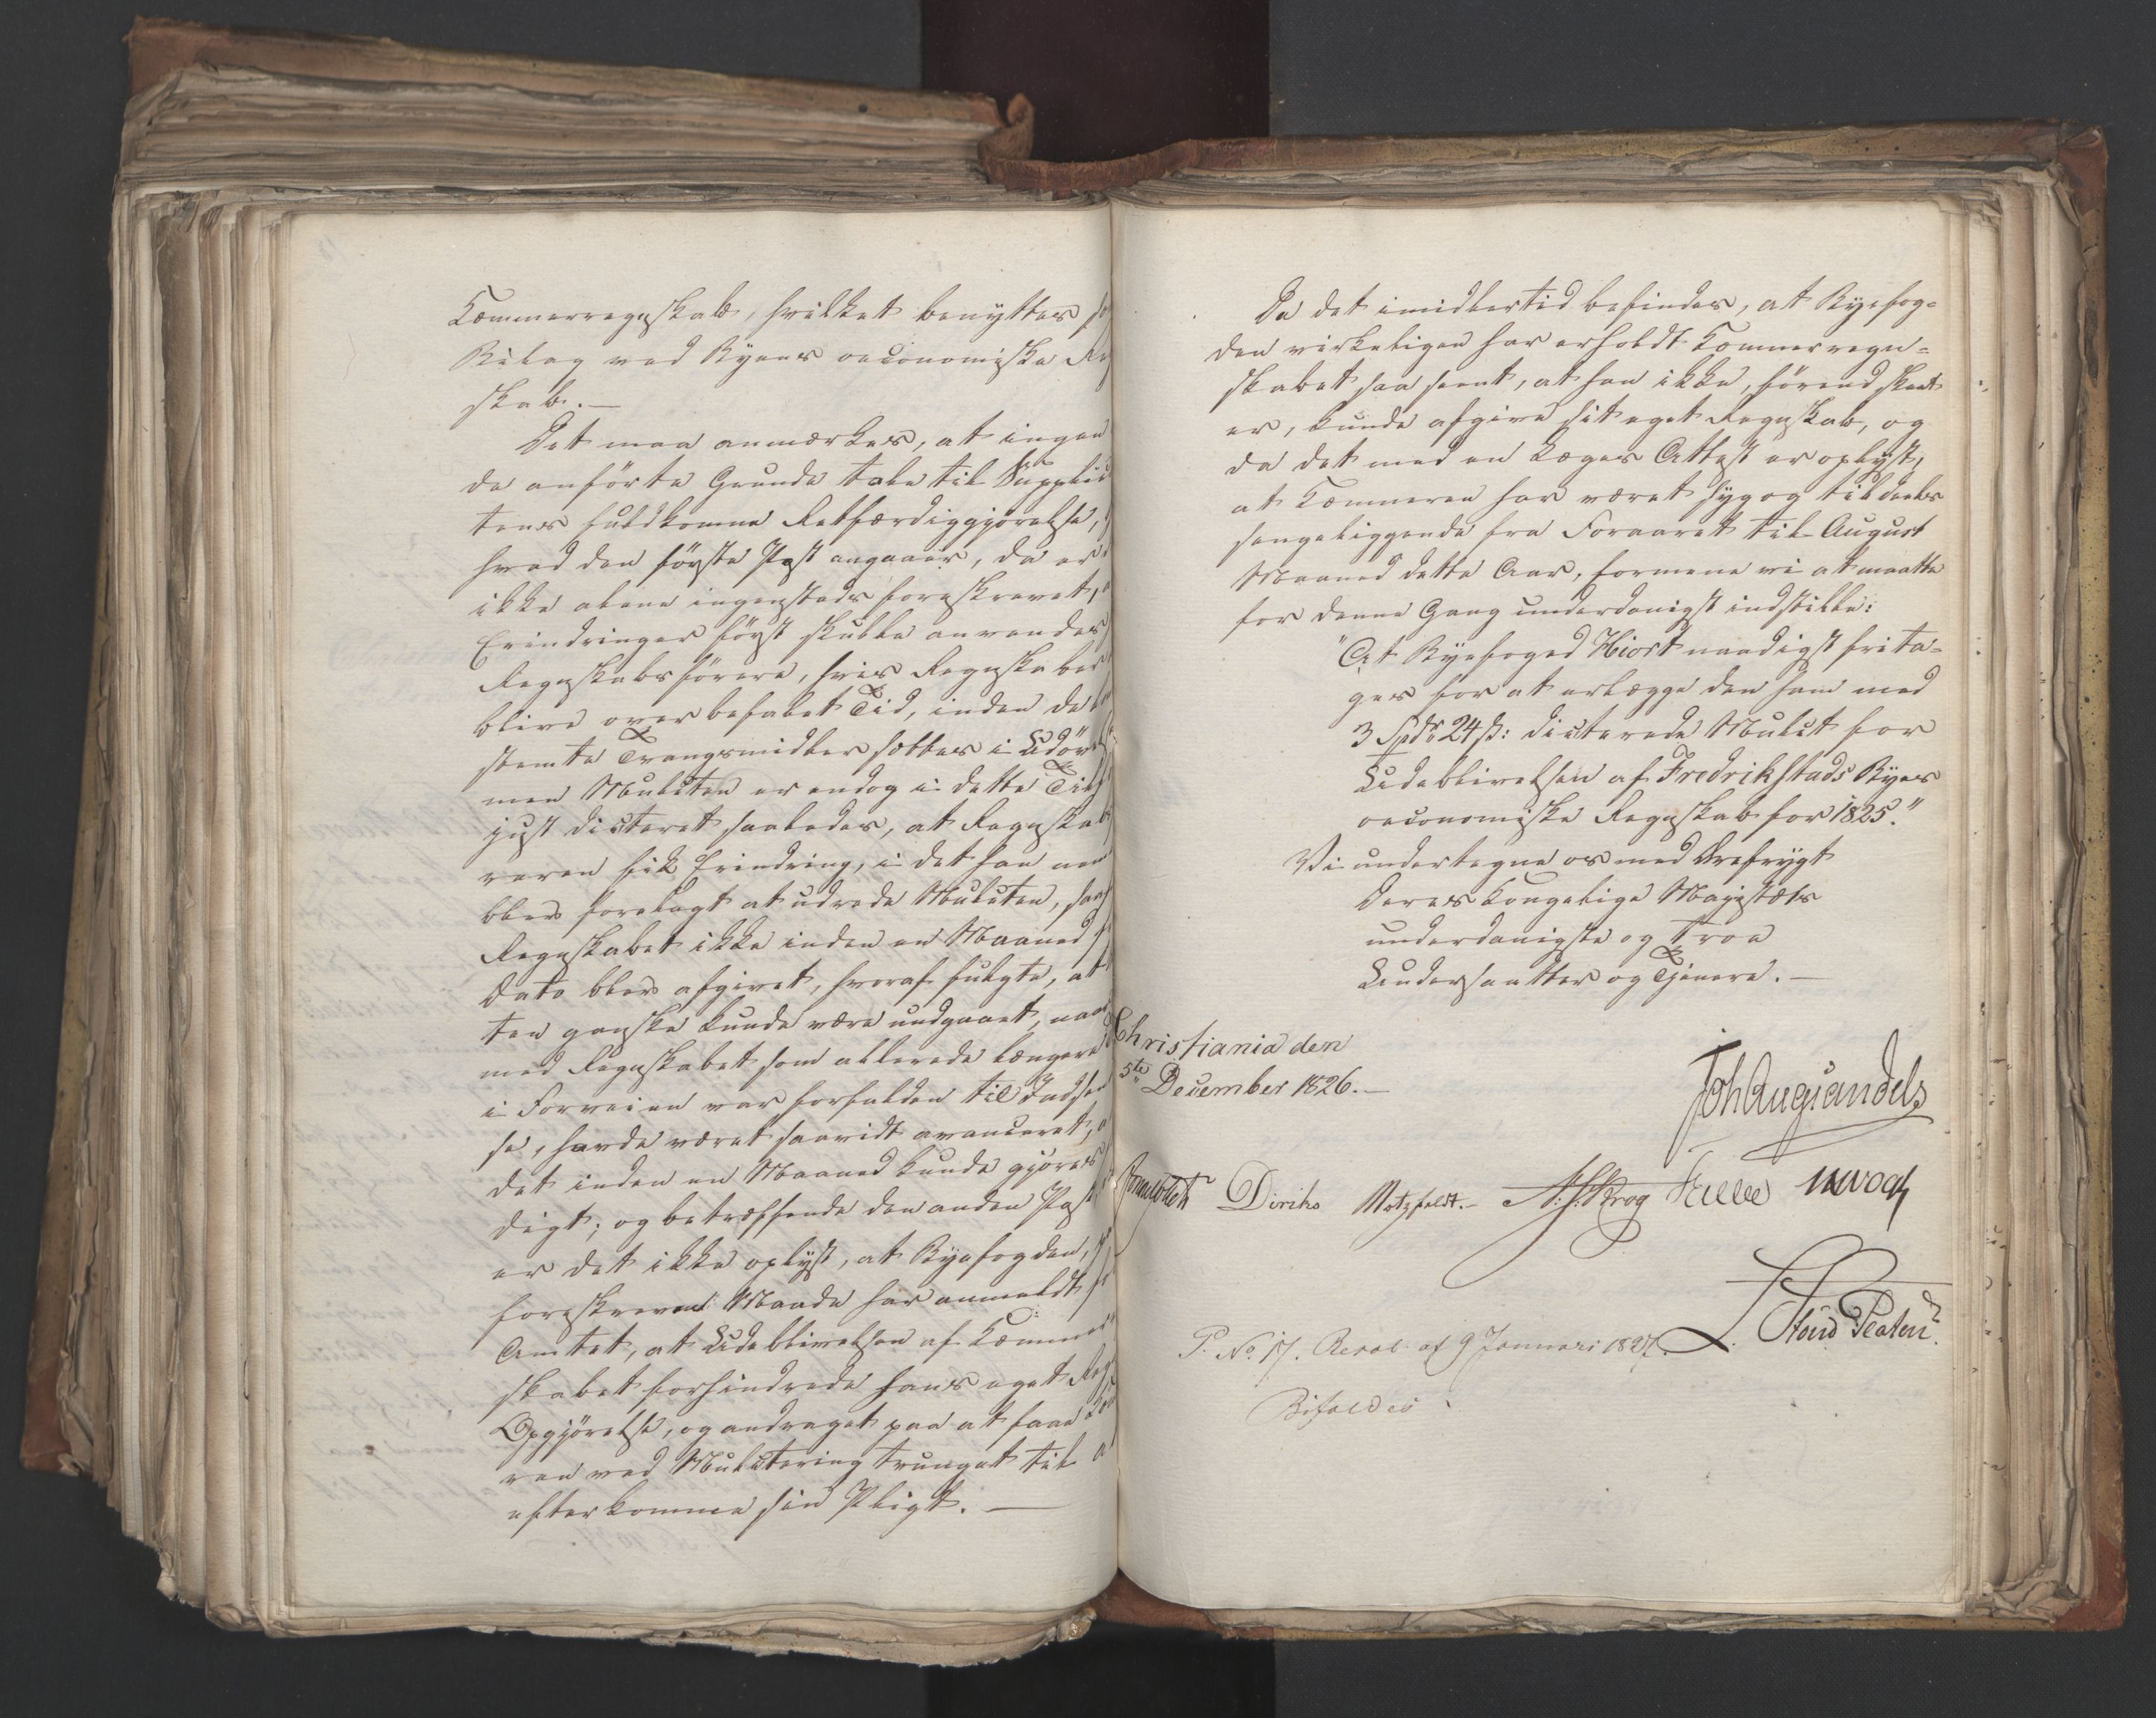 Kæmnerregnskab, hvilket benyttes
Bilag ved Byens oeconomiske
skab.—
Det maa anmærkes, at ingen
de anförte Grunde tale til
tens fuldkomne Retfærdiggjørelse,
hvad den første Post angaaer, da er
ikke alene ingensteds foreskrevet,
Erindringer först skulle anvendes
Regnskabsförere, hvis Regnskaber
blive over befalet Tid, inden de
stemte Tvangsmidler sættes i
men Mulcten er endog i dette
just dicteret saaledes, at
reren fik Erindring, i det han
blev forelagt at udrede Mulcten,
Regnskabet ikke inden en Maaned
Dato blev afgivet, hvoraf fulgte, at
ten ganske kunde være undgaaet, naar
med Regnskabet som allerede længere
i Forveien var forfalden til
se, havde været saavidt avanceret,
det inden en Maaned kunde gjöres
digt; og betræffende den anden Post
er det ikke oplyst, at Byefogden,
foreskreven Maade har anmeldt
Amtet, at Udeblivelsen af
skabet forhindrede hans eget
Opgjörelse, og andraget paa at faae
ren ved Mulctering tvunget til
efterkomme sin Pligt.—
Da det imidlertid befindes, at Byefog-
den virkeligen har erholdt Kæmnerregn-
skabet saa seent, at han ikke, förend skeet
er, kunde afgive sit eget Regnskab, og
da det med en Læges Attest er oplyst,
at Kæmneren har været syg og tildeels
sengeliggende fra Foraaret til August
Maaned dette Aar, formene vi at maatte
for denne Gang underdanigst indstille:
"At Byefoged Hiort naadigst frita-
ges for at erlægge den ham med
3 Spdr 24 ß: dicterede Mulct for
Udeblivelsen af Fredrikstads Byes
oeconomiske Regnskab for 1825."
Vi undertegne os med Ærefrygt
Deres Kongelige Majestæts
underdanigste og troe
Undersaatter og Tjenere.—
Christiania den
5te December 1826.—
Joh Aug Sandels
Diriks Motzfeldt.— Krog
P. No. 17. Resol. af 9 Januari 1827.
Bifaldes